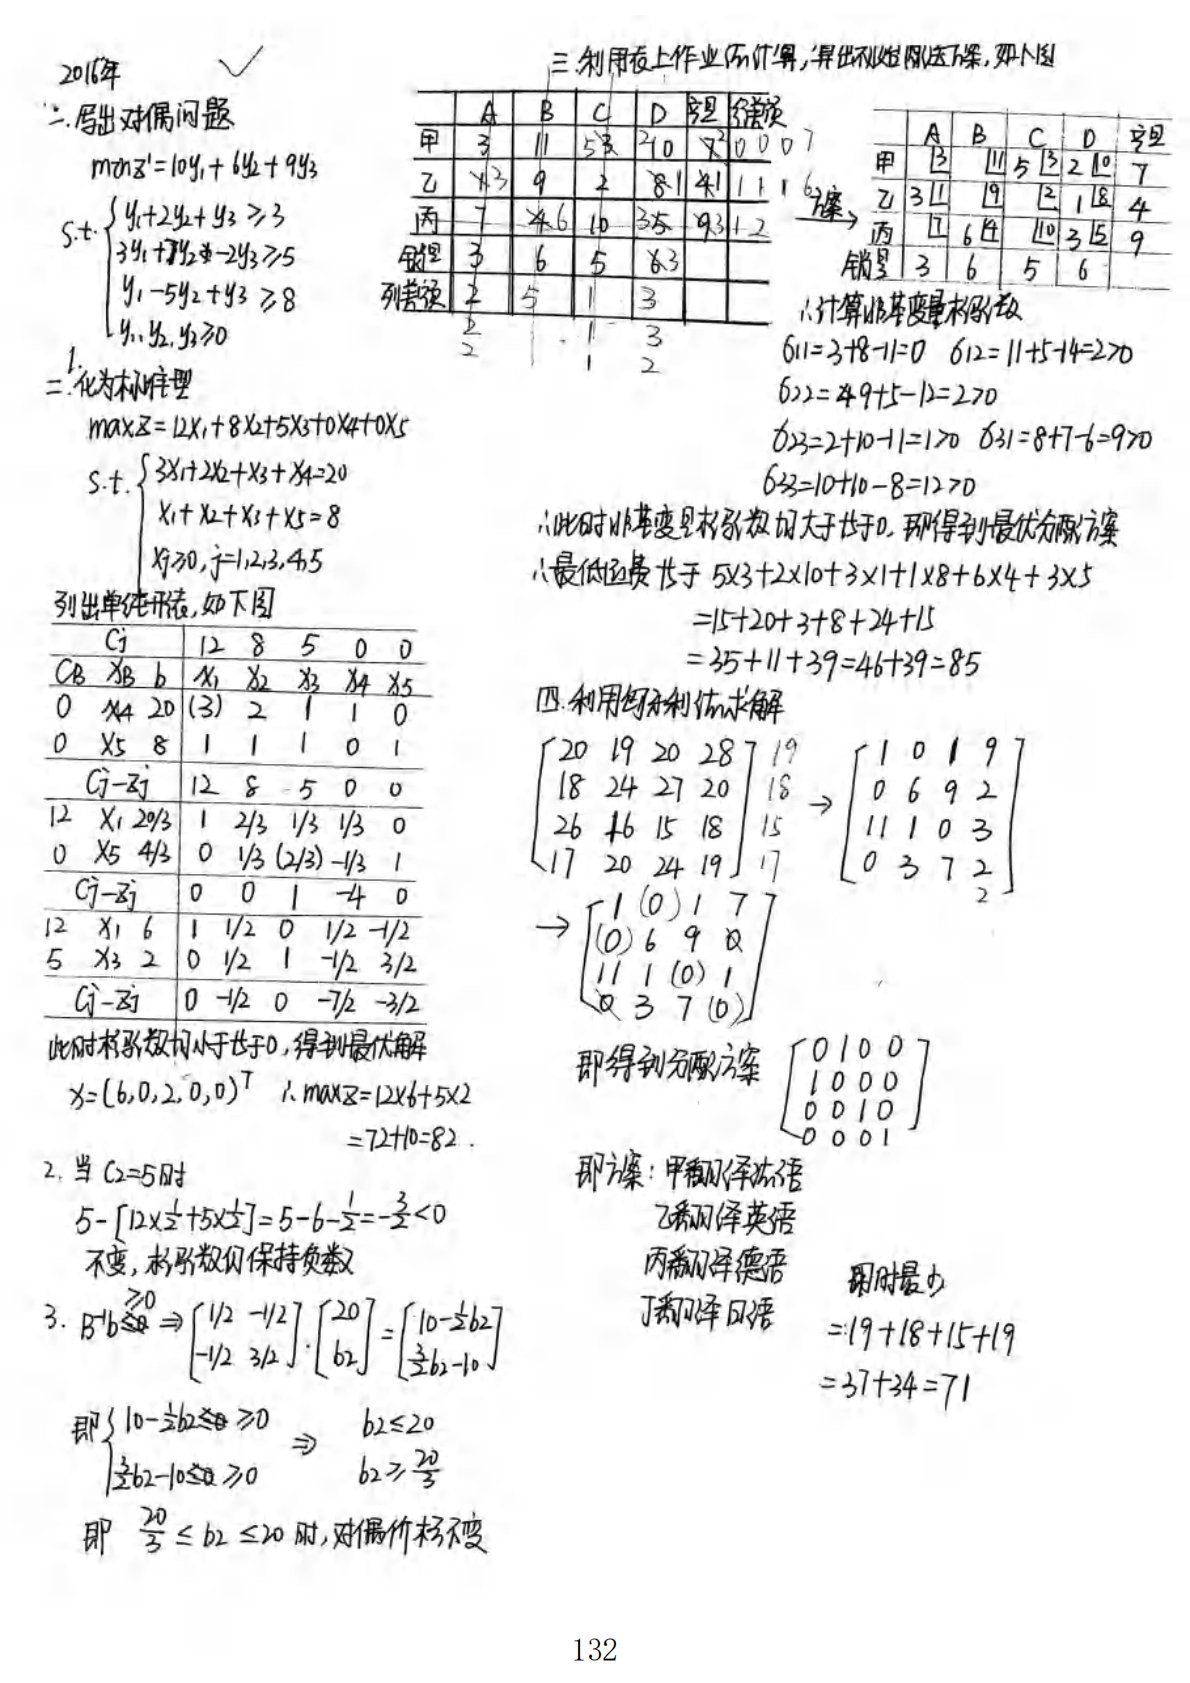 2016年
一.写出对偶问题
minz'=10y1+6y2+9y3
s.t. y1+2y2+y3≥3
3y1+y2-2y3≥5
y1-5y2+y3≥8
y1,y2,y3≥0
二.1.化为标准型
maxz=12x1+8x2+5x3+0x4+0x5
s.t. 3x1+2x2+x3+x4=20
x1+x2+x3+x5=8
xj≥0,j=1,2,3,4,5
列出单纯形表,如下图
Cj 12 8 5 0 0
CB XB b x1 x2 x3 x4 x5
0 x4 20 (3) 2 1 1 0
0 x5 8 1 1 1 0 1
Cj-Zj 12 8 5 0 0
12 x1 20/3 1 2/3 1/3 1/3 0
0 x5 4/3 0 1/3 (2/3) -1/3 1
Cj-Zj 0 0 1 -4 0
12 x1 6 1 1/2 0 1/2 -1/2
5 x3 2 0 1/2 1 -1/2 3/2
Cj-Zj 0 -1/2 0 -7/2 -3/2
此时检验数均小于等于0,得到最优解
x=(6,0,2,0,0)T ∴maxz=12×6+5×2
=72+10=82.
2. 当C2=5时
5-[12×1/2+5×1/2]=5-6-1/2=-3/2<0
不变,检验数仍保持负数
3. B-1b≥0 ⇒ [1/2 -1/2 -1/2 3/2]·[20 b2]=[10-1/2b2 3/2b2-10]
即 10-1/2b2≥0 ⇒ b2≤20
3/2b2-10≥0 b2≥20/3
即 20/3≤b2≤20时,对偶价格不变
三.利用表上作业法计算,算出初始配送方案,如下图
A B C D 产量 行差额
甲 3 11 5 3 2 10 7 2 0 0 0 7
乙 1 3 9 2 8 1 4 1 1 1 1 6
丙 7 4 6 10 3 5 9 3 1 2
销量 3 6 5 6 3
列差额 2 5 1 3
2 1 1 3
2 1 2
方案→
A B C D 产量
甲 3 11 5 3 2 10 7
乙 3 1 9 2 1 8 4
丙 7 6 4 10 3 5 9
销量 3 6 5 6
∴计算非基变量检验数
б11=3+8-11=0 б12=11+5-14=2>0
б22=9+5-12=2>0
б23=2+10-11=1>0 б31=8+7-6=9>0
б33=10+10-8=12>0
∴此时非基变量检验数均大于等于0,即得到最优分配方案
∴最低运费等于 5×3+2×10+3×1+1×8+6×4+3×5
=15+20+3+8+24+15
=35+11+39=46+39=85
四.利用匈牙利法求解
20 19 20 28 19 → 1 0 1 9
18 24 27 20 18 0 6 9 2
26 16 15 18 15 11 1 0 3
17 20 24 19 17 0 3 7 2
2
→ 1 (0) 1 7
(0) 6 9 0
11 1 (0) 1
0 3 7 (0)
即得到分配方案 0 1 0 0
1 0 0 0
0 0 1 0
0 0 0 1
即方案:甲翻译法语
乙翻译英语
丙翻译德语
丁翻译日语
用时最少
=19+18+15+19
=37+34=71
132